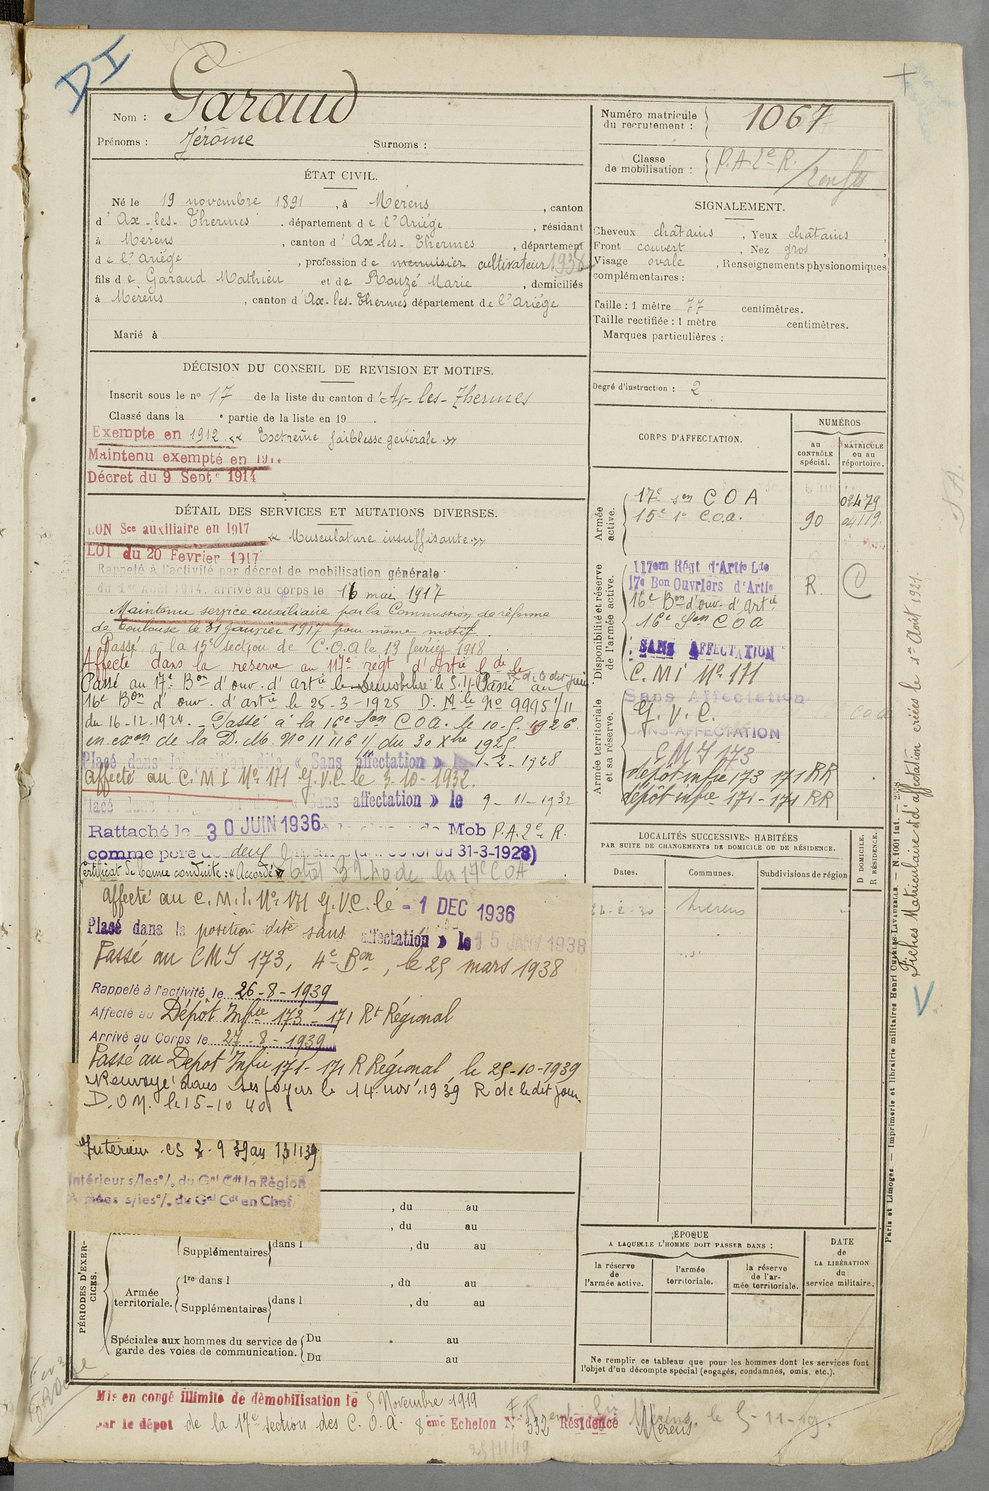 DI
Nom : Garaud
Prénoms : Jérôme Surnoms :
Numéro matricule du recrutement : 1067
Classe de mobilisation : P.A 2e R.
ÉTAT CIVIL.
Né le 19 novembre 1891, à Mérens, canton
d'Ax-les-Thermes, département de l'Ariège, résidant
à Mérens, canton d'Ax-les-Thermes, département
de l'Ariège, profession de menuisier cultivateur 1938
fils de Garaud Mathieu et de Rouzé Marie, domiciliés
à Mérens, canton d'Ax-les-Thermes département de l'Ariège
Marié à
SIGNALEMENT.
Cheveux chatains, Yeux chatains,
Front couvert, Nez gros
Visage ovale, Renseignements physionomiques
complémentaires :
Taille : 1 mètre 77 centimètres.
Taille rectifiée : 1 mètre centimètres.
Marques particulières :
Degré d'instruction : 2
DÉCISION DU CONSEIL DE REVISION ET MOTIFS.
Inscrit sous le no 17 de la liste du canton d'Ax-les-Thermes
Classé dans la e partie de la liste en 19
Exempte en 1912 « Extrême faiblesse générale »
Maintenu exempté en 191
Décret du 9 Septe 1914
DÉTAIL DES SERVICES ET MUTATIONS DIVERSES.
BON Sce auxiliaire en 1917
« Musculature insuffisante »
LOI du 20 Février 1917
Rappelé à l'activité par décret de mobilisation générale
du 1er Août 1914, arrivé au corps le 16 mai 1917
Maintenu service auxiliaire par la Commission de réforme
de Toulouse le 31 janvier 1917 pour même motif.
Passé à la 15e section de C.O.A le 13 février 1918
Affecté dans la réserve au 117e régt d'Artie Lde le
Passé au 17e Bon d'ouv. d'artie le
16e Bon d'ouv. d'artie le 25-3-1925 D. M. le No 9995 1/11
du 16-12-1924. Passé à la 16e Son C O A. le 10-5-1926
en exon de la D. M No 11 116 1/ du 30 Xbre 1925
Placé dans la « Sans affectation » le 1-2-1928
Affecté au C. M I No 171 G.V.C. le 3-10-1932.
Placé dans « Sans affectation » le 9-11-1932
Rattaché le 30 JUIN 1936 Mob P.A. 2e R.
comme père de deux du 31-3-1928)
Certificat de bonne conduite : « Accordé »
Affecté au C. M. I. No 171 G.V.C. le 1 DEC 1936
Placé dans la position dite sans affectation » le 15 JANV 1938
Passé au CMI 173, 4e Bon, le 25 mars 1938
Rappelé à l'activité le 26-8-1939
Affecté au Dépôt Infie 173-171 Rt Régional
Arrivé au Corps le 27-8-1939
Passé au Dépot Infie 171-171 R Régional le 25-10-1939
Renvoyé dans ses foyers le 14 novr 1939 R de le dit jour
D.O.M. le 15-10 40
Intérieur CS 2-9 39 au 13/11 39
Intérieur s/les o/. du Gal Cdt la Région
Armées s/les o/. du Gal Cdt en Chef
CORPS D'AFFECTATION.
NUMÉROS
au CONTRÔLE spécial.
MATRICULE ou au répertoire.
Armée active.
17e son C O A 02479
15e so C.O.A. 90 04119
Disponibilité et réserve de l'armée active.
117em Régt d'Artie Lde
17e Bon Ouvriers d'Artie R. C
16e Bon d'ouv. d'Artie
16e Son C O A
SANS AFFECTATION
C. M I No 171
Armée territoriale et sa réserve.
Sans Affectation
G. V. C.
SANS AFFECTATION
CMI 173
dépôt infie 173 171 RR
dépôt infie 171-171 RR
LOCALITÉS SUCCESSIVES HABITÉES
PAR SUITE DE CHANGEMENTS DE DOMICILE OU DE RÉSIDENCE.
Dates. Communes. Subdivisions de région D DOMICILE. R RÉSIDENCE.
Mérens
ÉPOQUE
A LAQUELLE L'HOMME DOIT PASSER DANS :
la réserve de l'armée active.
l'armée territoriale.
la réserve de l'armée territoriale.
DATE de LA LIBÉRATION du service militaire.
Ne remplir ce tableau que pour les hommes dont les services font
l'objet d'un décompte spécial (engagés, condamnés, omis, etc.).
PÉRIODES D'EXERCICES.
, du au
, du au
Supplémentaires dans l , du au
Armée territoriale.
1re dans l , du au
Supplémentaires dans l , du au
Spéciales aux hommes du service de garde des voies de communication.
Du au
Du au
Mis en congé illimité de démobilisation le 5 Novembre 1919
par le dépot de la 17e section des C.O.A. 8ème Echelon No 332 Résidence Mérens
Fiches Matriculaire et d'affectation créées le 1er Août 1921.
Paris et Limoges. — Imprimerie et librairie militaires Henri Charles-Lavauzelle.